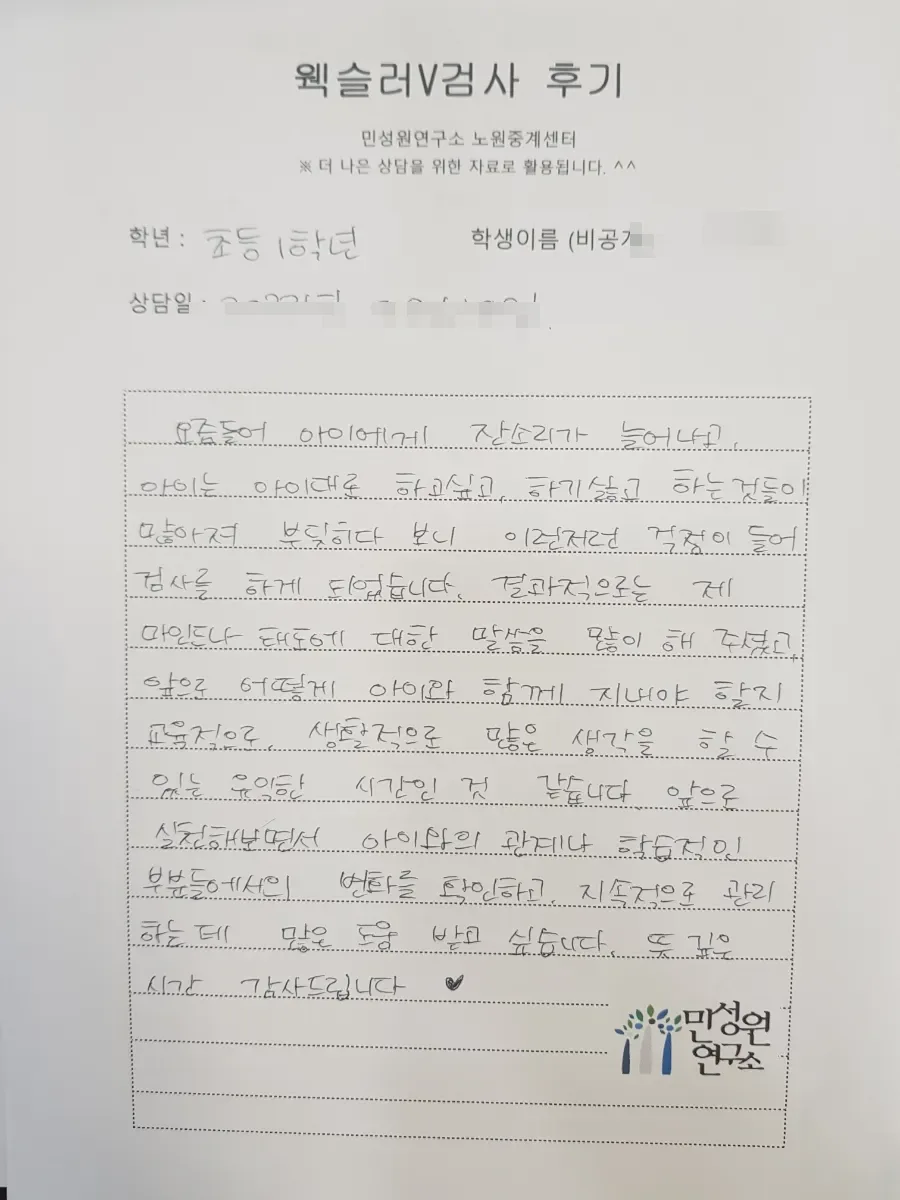 웩슬러V검사 후기
민성원연구소 노원중계센터
※ 더 나은 상담을 위한 자료로 활용됩니다. ^^
학년 : 초등 1학년
학생이름 (비공개
상담일 :
요즘들어 아이에게 잔소리가 늘어나고,
아이는 아이대로 하고싶고, 하기싫고 하는것들이
많아져 부딪히다 보니 이런저런 걱정이 들어
검사를 하게 되었습니다. 결과적으로는 제
마인드나 태도에 대한 말씀을 많이 해 주셨고,
앞으로 어떻게 아이와 함께 지내야 할지
교육적으로, 생활적으로 많은 생각을 할 수
있는 유익한 시간인 것 같습니다. 앞으로
실천해보면서 아이와의 관계나 학습적인
부분들에서의 변화를 확인하고, 지속적으로 관리
하는데 많은 도움 받고 싶습니다. 뜻 깊은
시간 감사드립니다 ♥
민성원
연구소